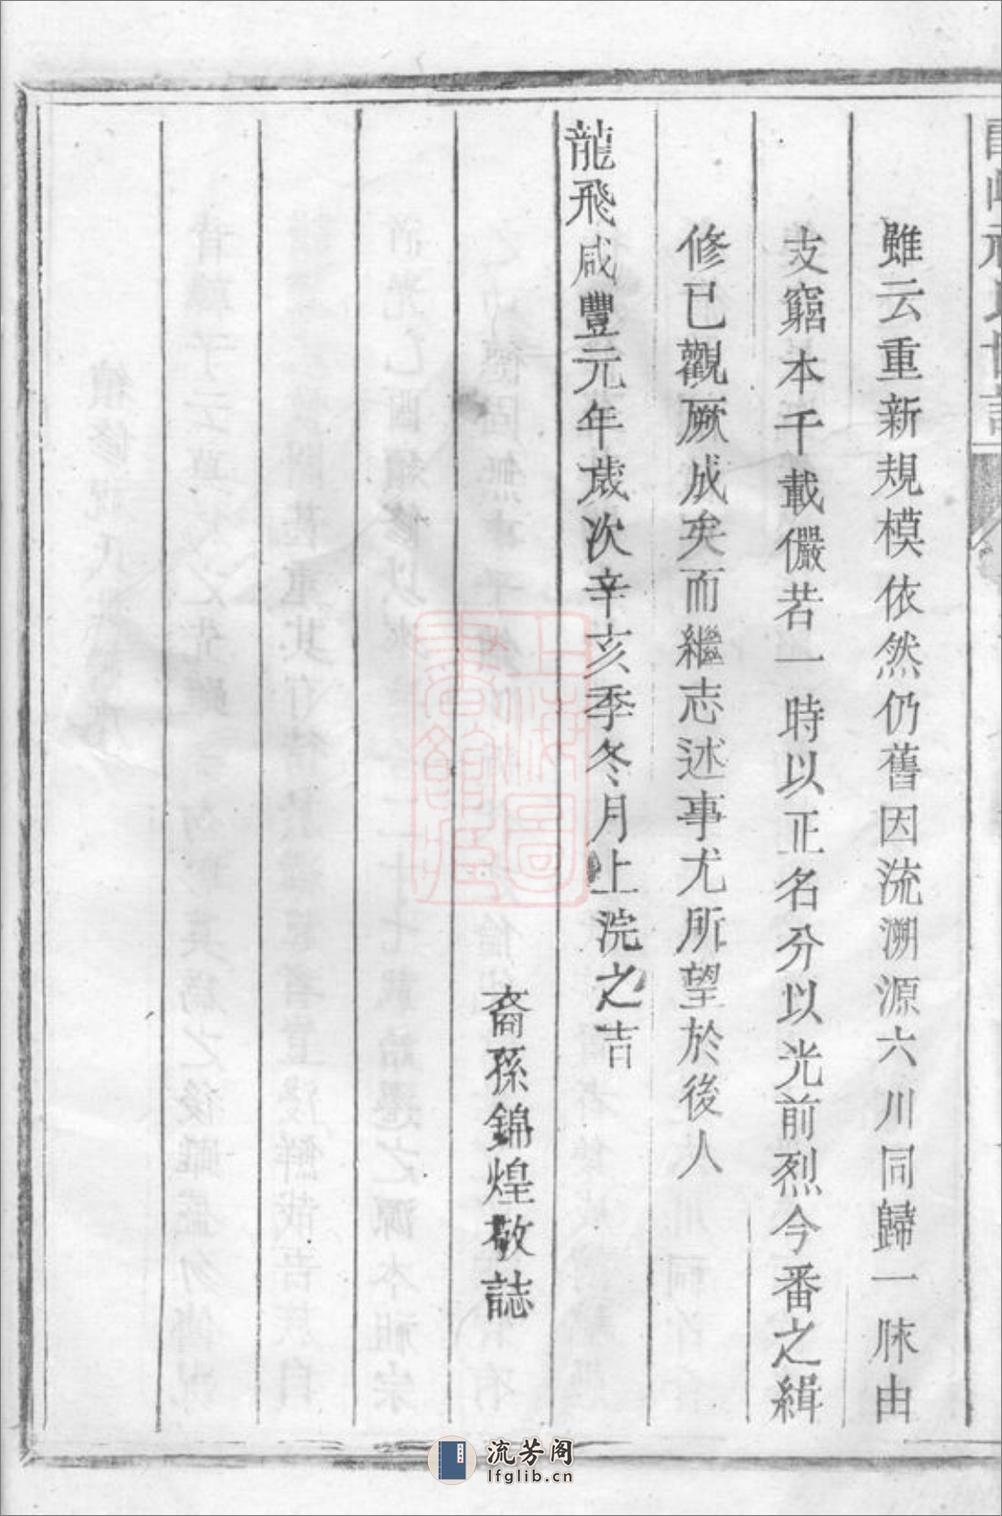 雖云重新規模依然仍舊因流溯源六川同歸一脉由
支窮本千載儼若一時以正名分以光前烈今番之緝
修已觀厥成矣而繼志述事尤所望於後人
龍飛咸豐元年歲次辛亥季冬月上浣之吉
裔孫錦煌敬誌
上海圖
書館藏
流芳阁
lfglib.cn